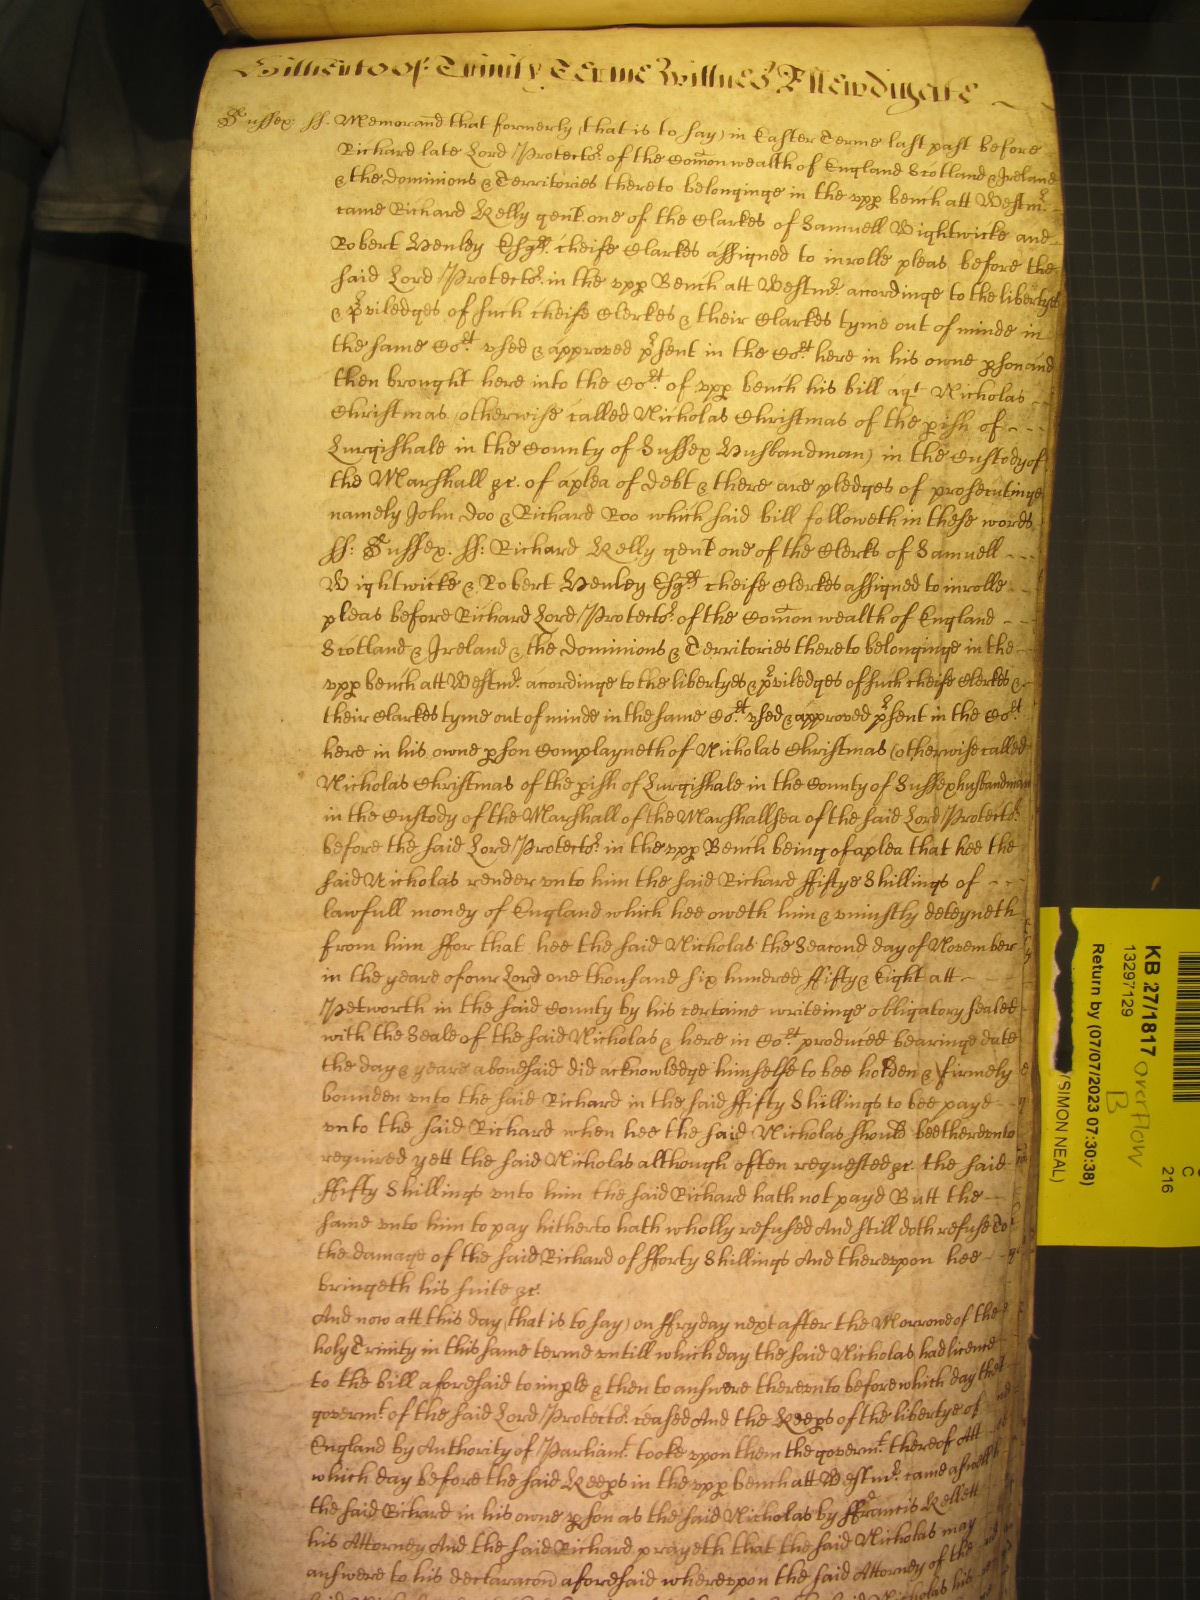 Hitherto of Trinity Terme Wittnes R Newdigate
Sussex ss. Memorand that formerly (that is to say) in Easter Terme last past before
Richard late Lord Protector of the Comon wealth of England Scotland & Ireland
& the dominions & Territories thereto belonginge in the vpp bench att Westmr
came Richard Kelly gent. one of the Clarkes of Samuell Wightwicke and
Robert Henley Esqrs cheife Clarkes assigned to inrolle pleas before the
said Lord Protector in the vpp Bench att Westmr accordinge to the libertyes
& pviledges of such cheife Clerkes & their Clarkes tyme out of minde in
the same Cort vsed & approved psent in the Cort here in his owne pson and
then brought here into the Cort of vpp bench his bill agt Nicholas
Christmas (otherwise called Nicholas Christmas of the pish of
Lurgishale in the County of Sussex Husbandman) in the Custody of
the Marshall &c. of a plea of debt & there are pledges of prosecutinge
namely John Doo & Richard Roo which said bill followeth in these words
ss: Sussex. ss: Richard Kelly gent one of the Clerks of Samuell
Wightwicke & Robert Henley Esqrs cheife Clerkes assigned to inrolle
pleas before Richard Lord Protector of the Comon wealth of England
Scotland & Ireland & the dominions & Territories thereto belonginge in the
vpp bench att Westmr accordinge to the libertyes & pviledges of such cheife Clerkes &
their Clarkes tyme out of minde in the same Cort vsed & approved psent in the Cort
here in his owne pson Complayneth of Nicholas Christmas (otherwise called
Nicholas Christmas of the pish of Lurgishale in the County of Sussex husbandman
in the Custody of the Marshall of the Marshallsea of the said Lord Protector
before the said Lord Protector in the vpp Bench being of a plea that hee the
said Nicholas render vnto him the said Richard ffiftye Shillings of
lawfull money of England which hee oweth him & vniustly deteyneth
from him ffor that hee the said Nicholas the Seacond day of November
in the yeare of our Lord one thousand six hundred ffifty & Eight att
Petworth in the said County by his certaine writeinge obligatory sealed
with the Seale of the said Nicholas & here in Cort produced bearinge date
the day & yeare abouesaid did acknowledge himselfe to bee holden & firmely
bounden vnto the said Richard in the said ffifty Shillings to bee payd
vnto the said Richard when hee the said Nicholas should bee therevnto
required yett the said Nicholas although often requested &c. the said
ffifty Shillings vnto him the said Richard hath not payd Butt the
same vnto him to pay hitherto hath wholly refused And still doth refuse To
the damage of the said Richard of fforty Shillings And therevpon hee
bringeth his suite &c.
And now att this day (that is to say) on ffryday next after the Morrowe of the
holy Trinity in this same terme vntill which day the said Nicholas had licence
to the bill aforesaid to imple & then to answere therevnto before which day the
governt of the said Lord Protector ceased And the Keeps of the libertye of
England by Authority of Parliamt tooke vpon them the governt thereof Att
which day before the said Keeps in the vpp bench att Westmr came aswell
the said Richard in his owne pson as the said Nicholas by ffrancis Kellett
his Attorney And the said Richard prayeth that the said Nicholas may
answere to his declaracon aforesaid wherevpon the said Attorney of the
KB 27/1817 overflow B
13297129
Return by (07/07/2023 07:30:38)
(SIMON NEAL)
216
C